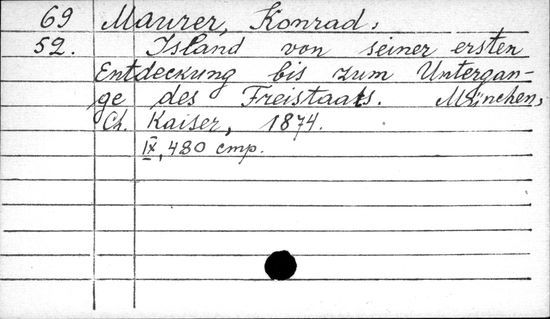 69 Maurer, Konrad,
52. Island von seiner ersten
Entdeckung bis zum Untergan-
ge des Freistaats. München,
Ch. Kaiser, 1874.
IX, 480 стр.